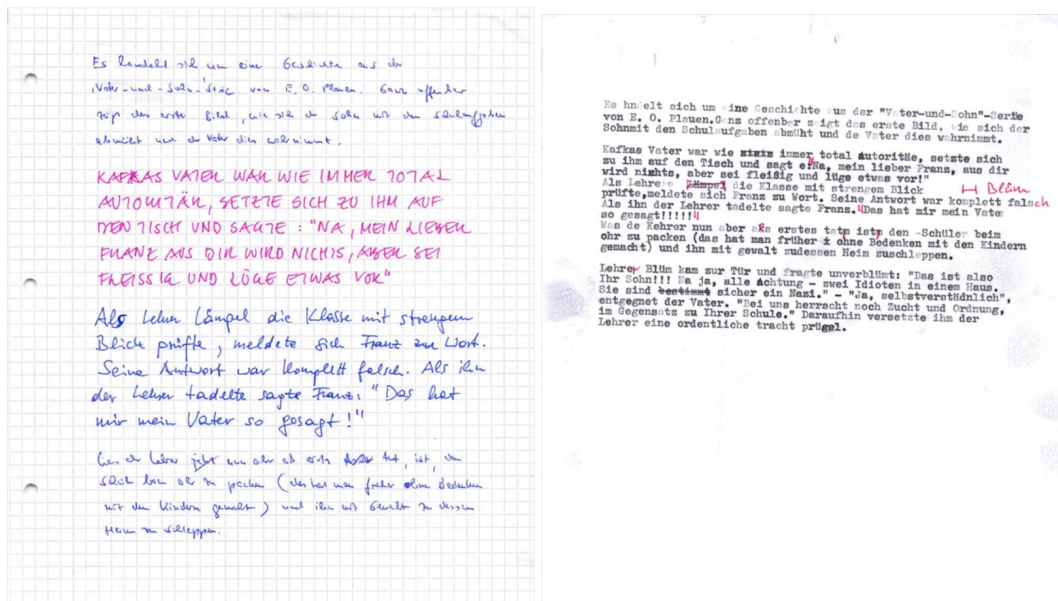 Es handelt sich um eine Geschichte aus der
"Vater-und-Sohn"-Serie von E. O. Plauen. Ganz offenbar
zeigt das erste Bild, wie sich der Sohn mit den Schulaufgaben
abmüht und der Vater dies wahrnimmt.
KAFKAS VATER WAR WIE IMMER TOTAL
AUTORITÄR, SETZTE SICH ZU IHM AUF
DEN TISCH UND SAGTE: "NA, MEIN LIEBER
FRANZ AUS DIR WIRD NICHTS, ABER SEI
FLEISSIG UND LÜGE ETWAS VOR"
Als Lehrer Lämpel die Klasse mit strengem
Blick prüfte, meldete sich Franz zu Wort.
Seine Antwort war komplett falsch. Als ihn
der Lehrer tadelte sagte Franz: "Das hat
mir mein Vater so gesagt!"
Was der Lehrer jetzt nun aber als erstes tut, ist, den
Schüler beim Ohr zu packen (das hat man früher ohne Bedenken
mit den Kindern gemacht) und ihn mit Gewalt zu dessen
Heim zu schleppen.
Es hndelt sich um eine Geschichte aus der "Vater-und-Sohn"-Serie
von E. O. Plauen.Ganz offenbar zeigt das erste Bild, wie sich der
Sohnmit den Schulaufgaben abmüht und de Vater dies wahrnimmt.
Kafkas Vater war wie immer total Autoritäe, setzte sich
zu ihm auf den Tisch und sagt e:"Na, mein lieber Franz, aus dir
wird nichts, aber sei fleißig und lüge etwas vor!"
Als Lehrer Lämpel die Klasse mit strengem Blick ⊢ Blüm
prüfte,meldete sich Franz zu Wort. Seine Antwort war komplett falsch
Als ihn der Lehrer tadelte sagte Franz."Das hat mir mein Vate
so gesagt!!!!!"
Was de Kehrer nun aber als erstes tat, ist, den -Schüler beim
ohr zu packen (das hat man früher ohne Bedenken mit den Kindern
gemacht) und ihn mit gewalt zudessen Heim zuschleppen.
Lehrer Blüm kam zur Tür und fragte unverblümt: "Das ist also
Ihr Sohn!!! Na ja, alle Achtung - zwei Idioten in einem Haus.
Sie sind bestimmt sicher ein Nazi." - "Ja, selbstverstHdnlich",
entgegnet der Vater. "Bei uns herrscht noch Zucht und Ordnung,
im Gegensatz zu Ihrer Schule." Daraufhin versetzte ihm der
Lehrer eine ordentliche tracht prügel.